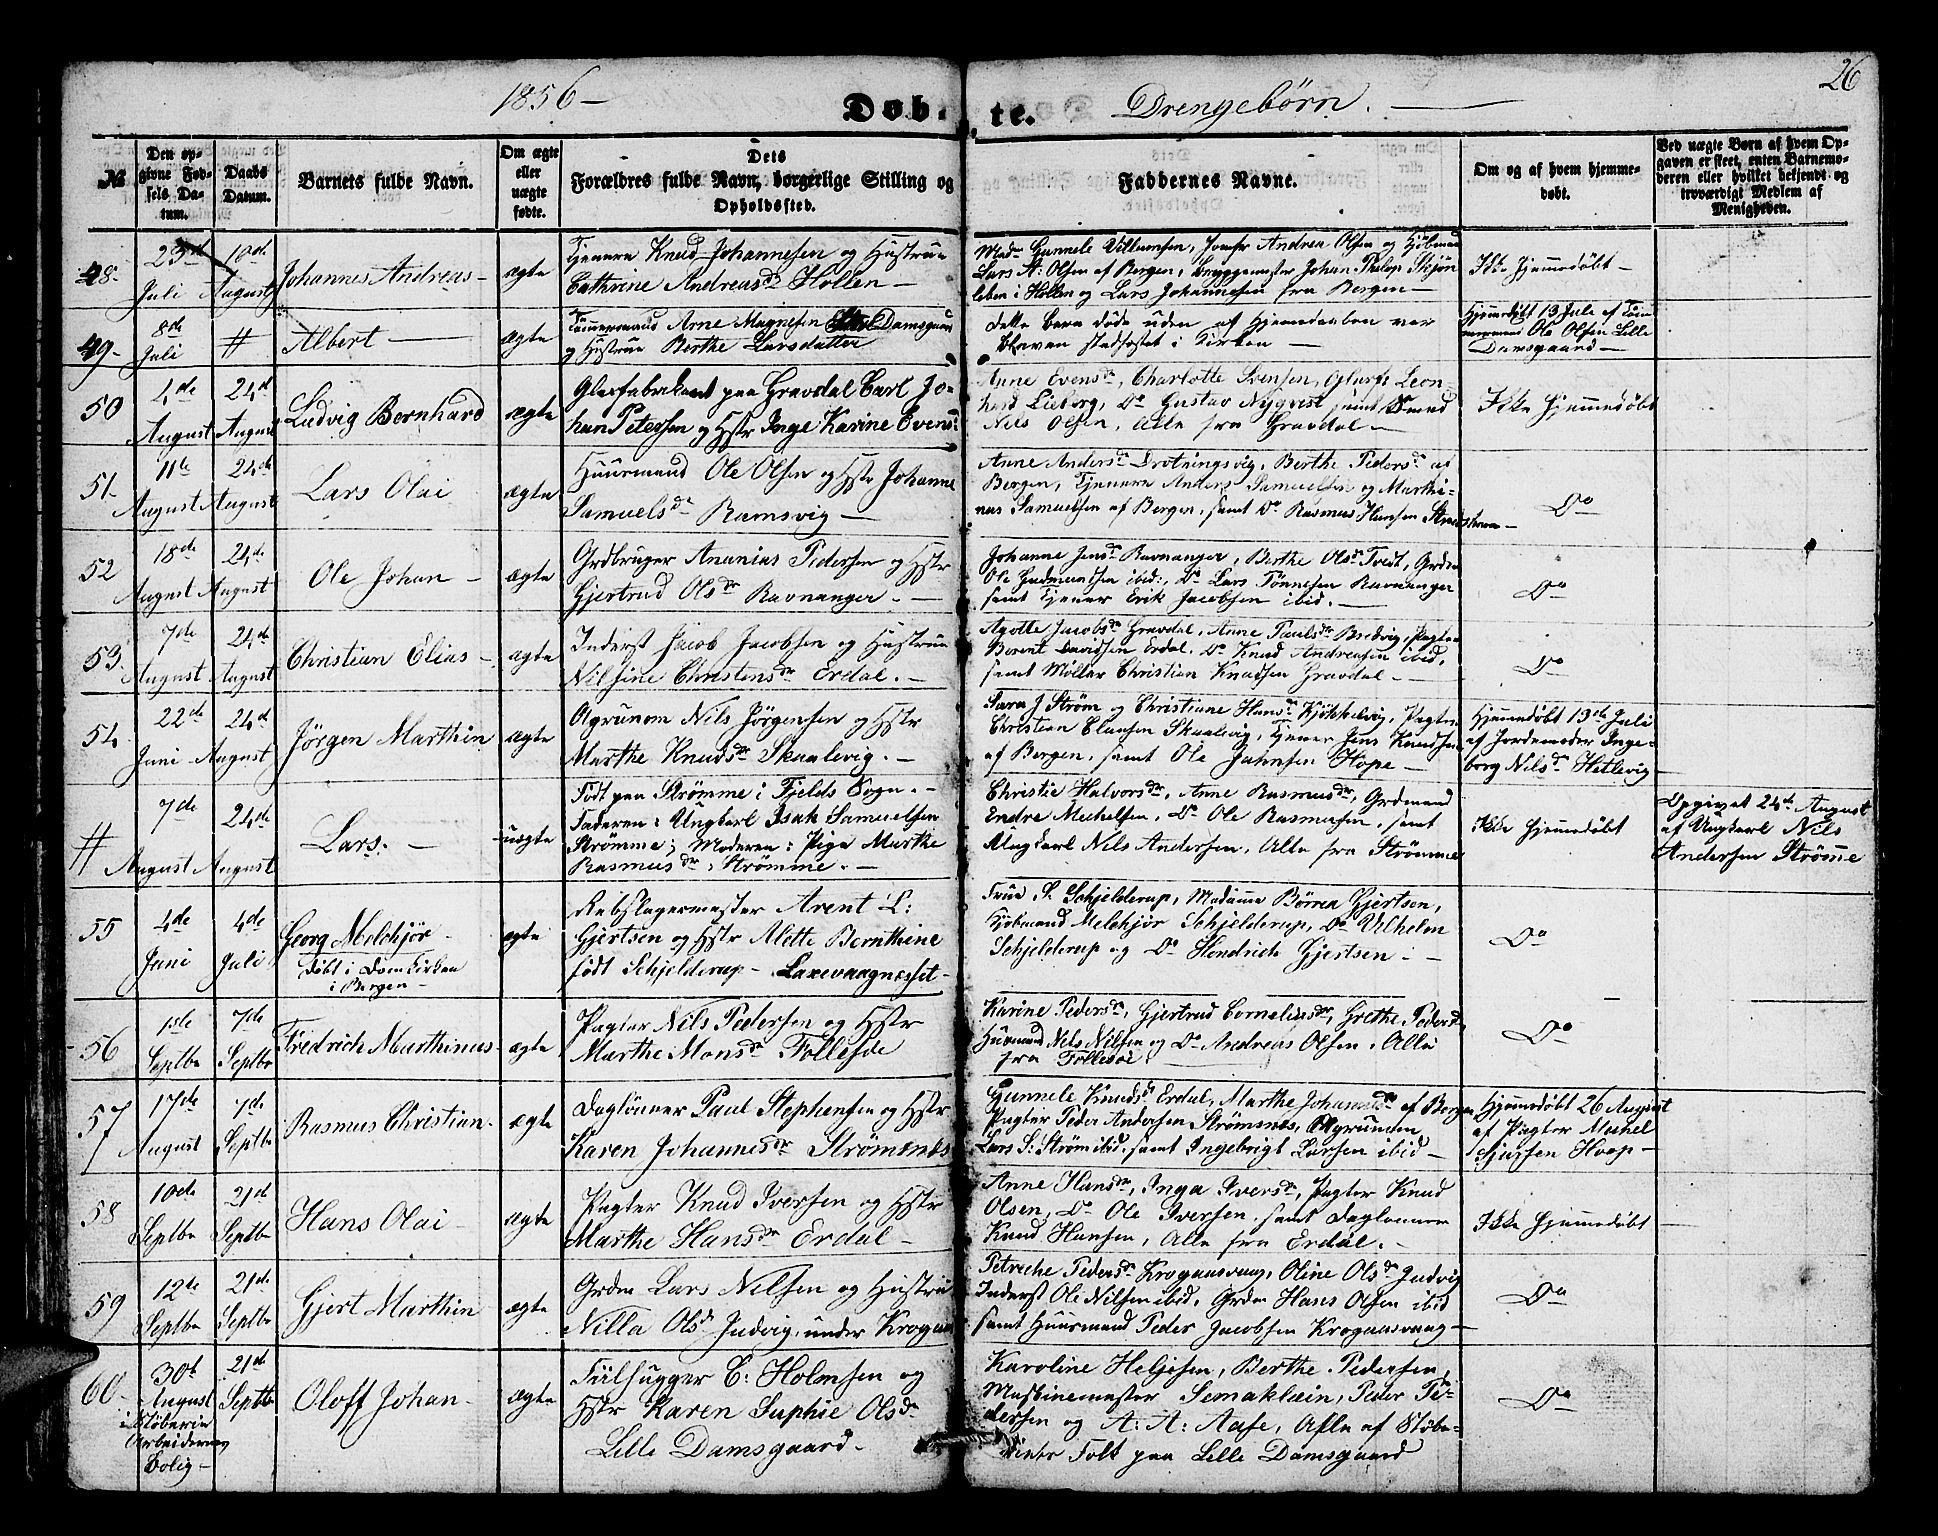 1856 –
Døbte.
Drengebørn. —
26
№
Den opgivne Fødsels Datum.
Daabs Datum.
Barnets fulde Navn.
Om ægte eller uægte fødte.
Dets Forældres fulde Navn, borgerlige Stilling og Opholdssted.
Faddernes Navne.
Om og af hvem hjemmedøbt.
Ved uægte Børn af hvem Opgaven er skeet, enten Barnemoderen eller hvilket bekjendt og troværdigt Medlem af Menigheden.
48.
23de Juli
10de August
Johannes Andreas –
ægte
Tjenere Knud Johannesen og Hustrue
Cathrine Andreasd. Hollen –
Mad. Gunnele Villumsen, Jomfr Andrea Olsen og Kjøbmand
Lars A: Olsen af Bergen, Bryggemester Johan Philip Skjøn
leben i Hollen og Lars Johannesen fra Bergen –
Ikke hjemmedøbt –
49 –
8de Juli
#
Albert —
ægte
Tømmermand Arne Magnesen Lille Damsgaard
og Hustrue Berthe Larsdatter
Dette Barn døde uden at Hjemmedaaben var
bleven stadfæstet i Kirken –
Hjemmedøbt 19 Jule af Tøm
mermand Ole Olsen Lille
Damsgaard –
50
4de August
24d August
Ludvig Bernhard
ægte
Glasfabrikant paa Gravdal Carl Jo-
han Petersen og Hstr Inge Karine Evens.
Anne Evensd., Charlotte Svensen, Glarf. Leon-
hard Lieberg, Do Gustav Nyqvist samt Smed
Nils Olsen, Alle fra Gravdal –
Ikke Hjemmedøbt
51.
11te August
24de August
Lars Olai
ægte
Huusmand Ole Olsen og Hstr Johanne
Samuelsd. Ramsvig –
Anne Andersd. Drotningsvig, Berthe Pedersd. af
Bergen, Tjenere Anders Samuelsen og Marthi-
nus Samuelsen af Bergen, samt Do Rasmus Hansen
Do
52
18de August
24de August
Ole Johan –
ægte
Grdbruger Ananias Pedersen og Hstr
Gjertrud Olsdr Ravnanger. –
Johanne Jensd. Ravnanger, Berthe Olsd. Tvedt, Grdm
Ole Gudmundsen ibid:, Do Lars Tønnesen Ravnanger
samt Tjener Erik Jacobsen ibid. –
Do
53.
7de August
24de August
Christian Elias –
ægte
Inderst Jacob Jacobsen og Hustrue
Nilsine Christensdr Erdal. –
Agotte Jacobsd. Gravdal, Anne Paulsdr Bredvig, Pagter
Berent Davidsen Erdal, Do Knud Andreasen ibid,
samt Møller Christian Knudsen Gravdal –
Do
54.
22de Juni
24d August
Jörgen Marthin
ægte
Ogrunom Nils Jörgensen og Hstr
Marthe Knudsdr Skaalevig. –
Sara J Strøm og Christiane Hansdr Kjøkkelvig, Pagter
Christian Clausen Skaalevig, Tjener Jens Knudsen
af Bergen, samt Ole Johnsen Hope –
Hjemmedøbt 13de Juli
af Jordemoder Inge-
borg Nilsd. Hetlevig –
#
7de August
24de August
Lars. –
uægte
Född paa Strömme i Fjelds Sogn. –
Faderen: Ungkarl Isak Samuelsen
Strömme; Moderen: Pige Marthe
Rasmusdr. Strömme. –
Christie Halvorsdr, Anne Rasmusdr, Grdmand
Endre Mechelsen, Do Ole Rasmusen, samt
Ungkarl Nils Andersen, Alle fra Strömme
Ikke Hjemmedøbt
Opgivet 24de August
af Ungkarl Nils
Andersen Strömme
55
4de Juni
4de Juli
Georg Melchjör –
Døbt i Domkirken
i Bergen –
ægte
Rebslagermester Arent L:
Gjertsen og Hstr Alette Bernthine
född Schjelderup – Laxevaagnæsset –
Frue S. Schjelderup, Madamme Børrea Gjertsen,
Kjøbmand Melchjör Schjelderup, Do Vilhelm
Schjelderup og Do Hendrich Gjertsen. –
Do
56
1ste Septbr
7de Septbr
Fredrich Marthinus –
ægte
Pagter Nils Pedersen og Hstr
Marthe Monsdr Follesöe
Karine Pedersdr, Gjertrud Cornelius dr, Grethe Pedersd.
Huusmand Nels Nilsen og Do Andreas Olsen. Alle
fra Follesöe
Do
57
17de August
7de Septbr
Rasmus Christian –
ægte
Daglönner Paul Stephensen og Hstr
Karen Johannesdr Strömsnes
Gunnele Knudsd. Erdal, Marthe Johannesdr af Bergen,
Pagter Peder Andersen Strömsnes, Ogrunom
Lars S: Ström ibid, samt Ingebrigt Larsen ibid –
Hjemmedøbt 26 August
af Pagter Mechel
Sjursen Hoop –
58
10de Septbr
21de Septbr
Hans Olai –
ægte
Pagter Knud Iversen og Hstr
Marthe Hansdr Erdal –
Anne Hansdr, Inga Iversdr, Pagter Knud
Olsen, Do Ole Iversen, samt Daglønner
Knud Hansen, Alle fra Erdal. –
Ikke Hjemmedøbt
59
12te Septbr
21de Septbr
Gjert Marthin
ægte
Grdm Lars Nilsen og Hustrue
Nilla Olsd. Judvig, under Krogaas
Petriche Pedersdr Krogaasvaag, Oline Olsd. Judvig
Inderst Ole Nilsen ibid, Grdm Hans Olsen ibid
samt Huusmand Peder Jacobsen Krogaasvaag –
Do
60 –
30te August
i Støberie
Arbeidernes
Bolig –
21de Septbr
Oloff Johan –
ægte
Fiilhugger C: Holmsen og
Hstr Karen Suphie Olsdr
Lille Damsgaard –
Karoline Heljesen, Berthe Pedersen,
Maskinemester Semaklain, Peder Pe-
dersen og A: A: Aase, Alle af Støbe-
Folk paa Lille Damsgaard
Do